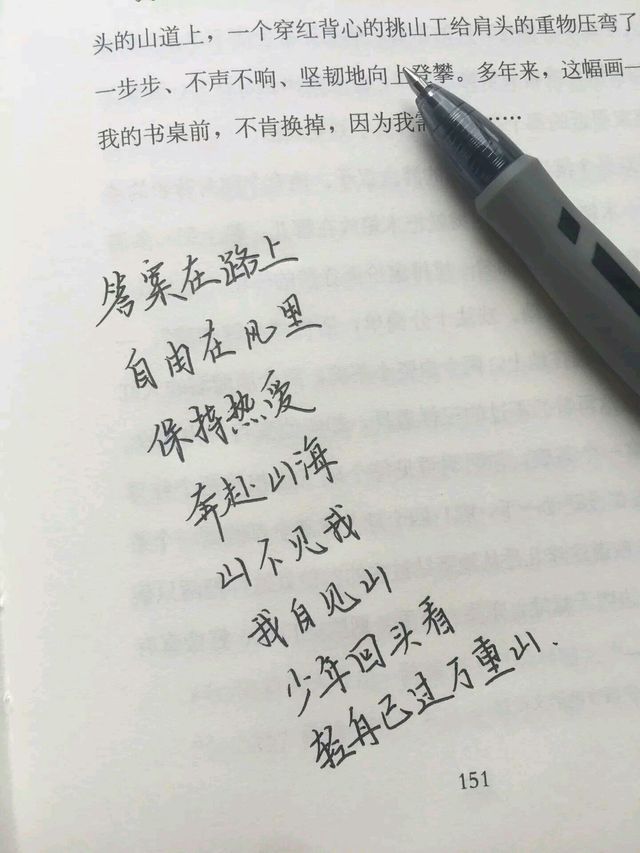 头的山道上，一个穿红背心的挑山工给肩头的重物压弯了
一步步、不声不响、坚韧地向上登攀。多年来，这幅画一
我的书桌前，不肯换掉，因为我需……
答案在路上
自由在风里
保持热爱
奔赴山海
山不见我
我自见山
少年回头看
轻舟已过万重山.
151